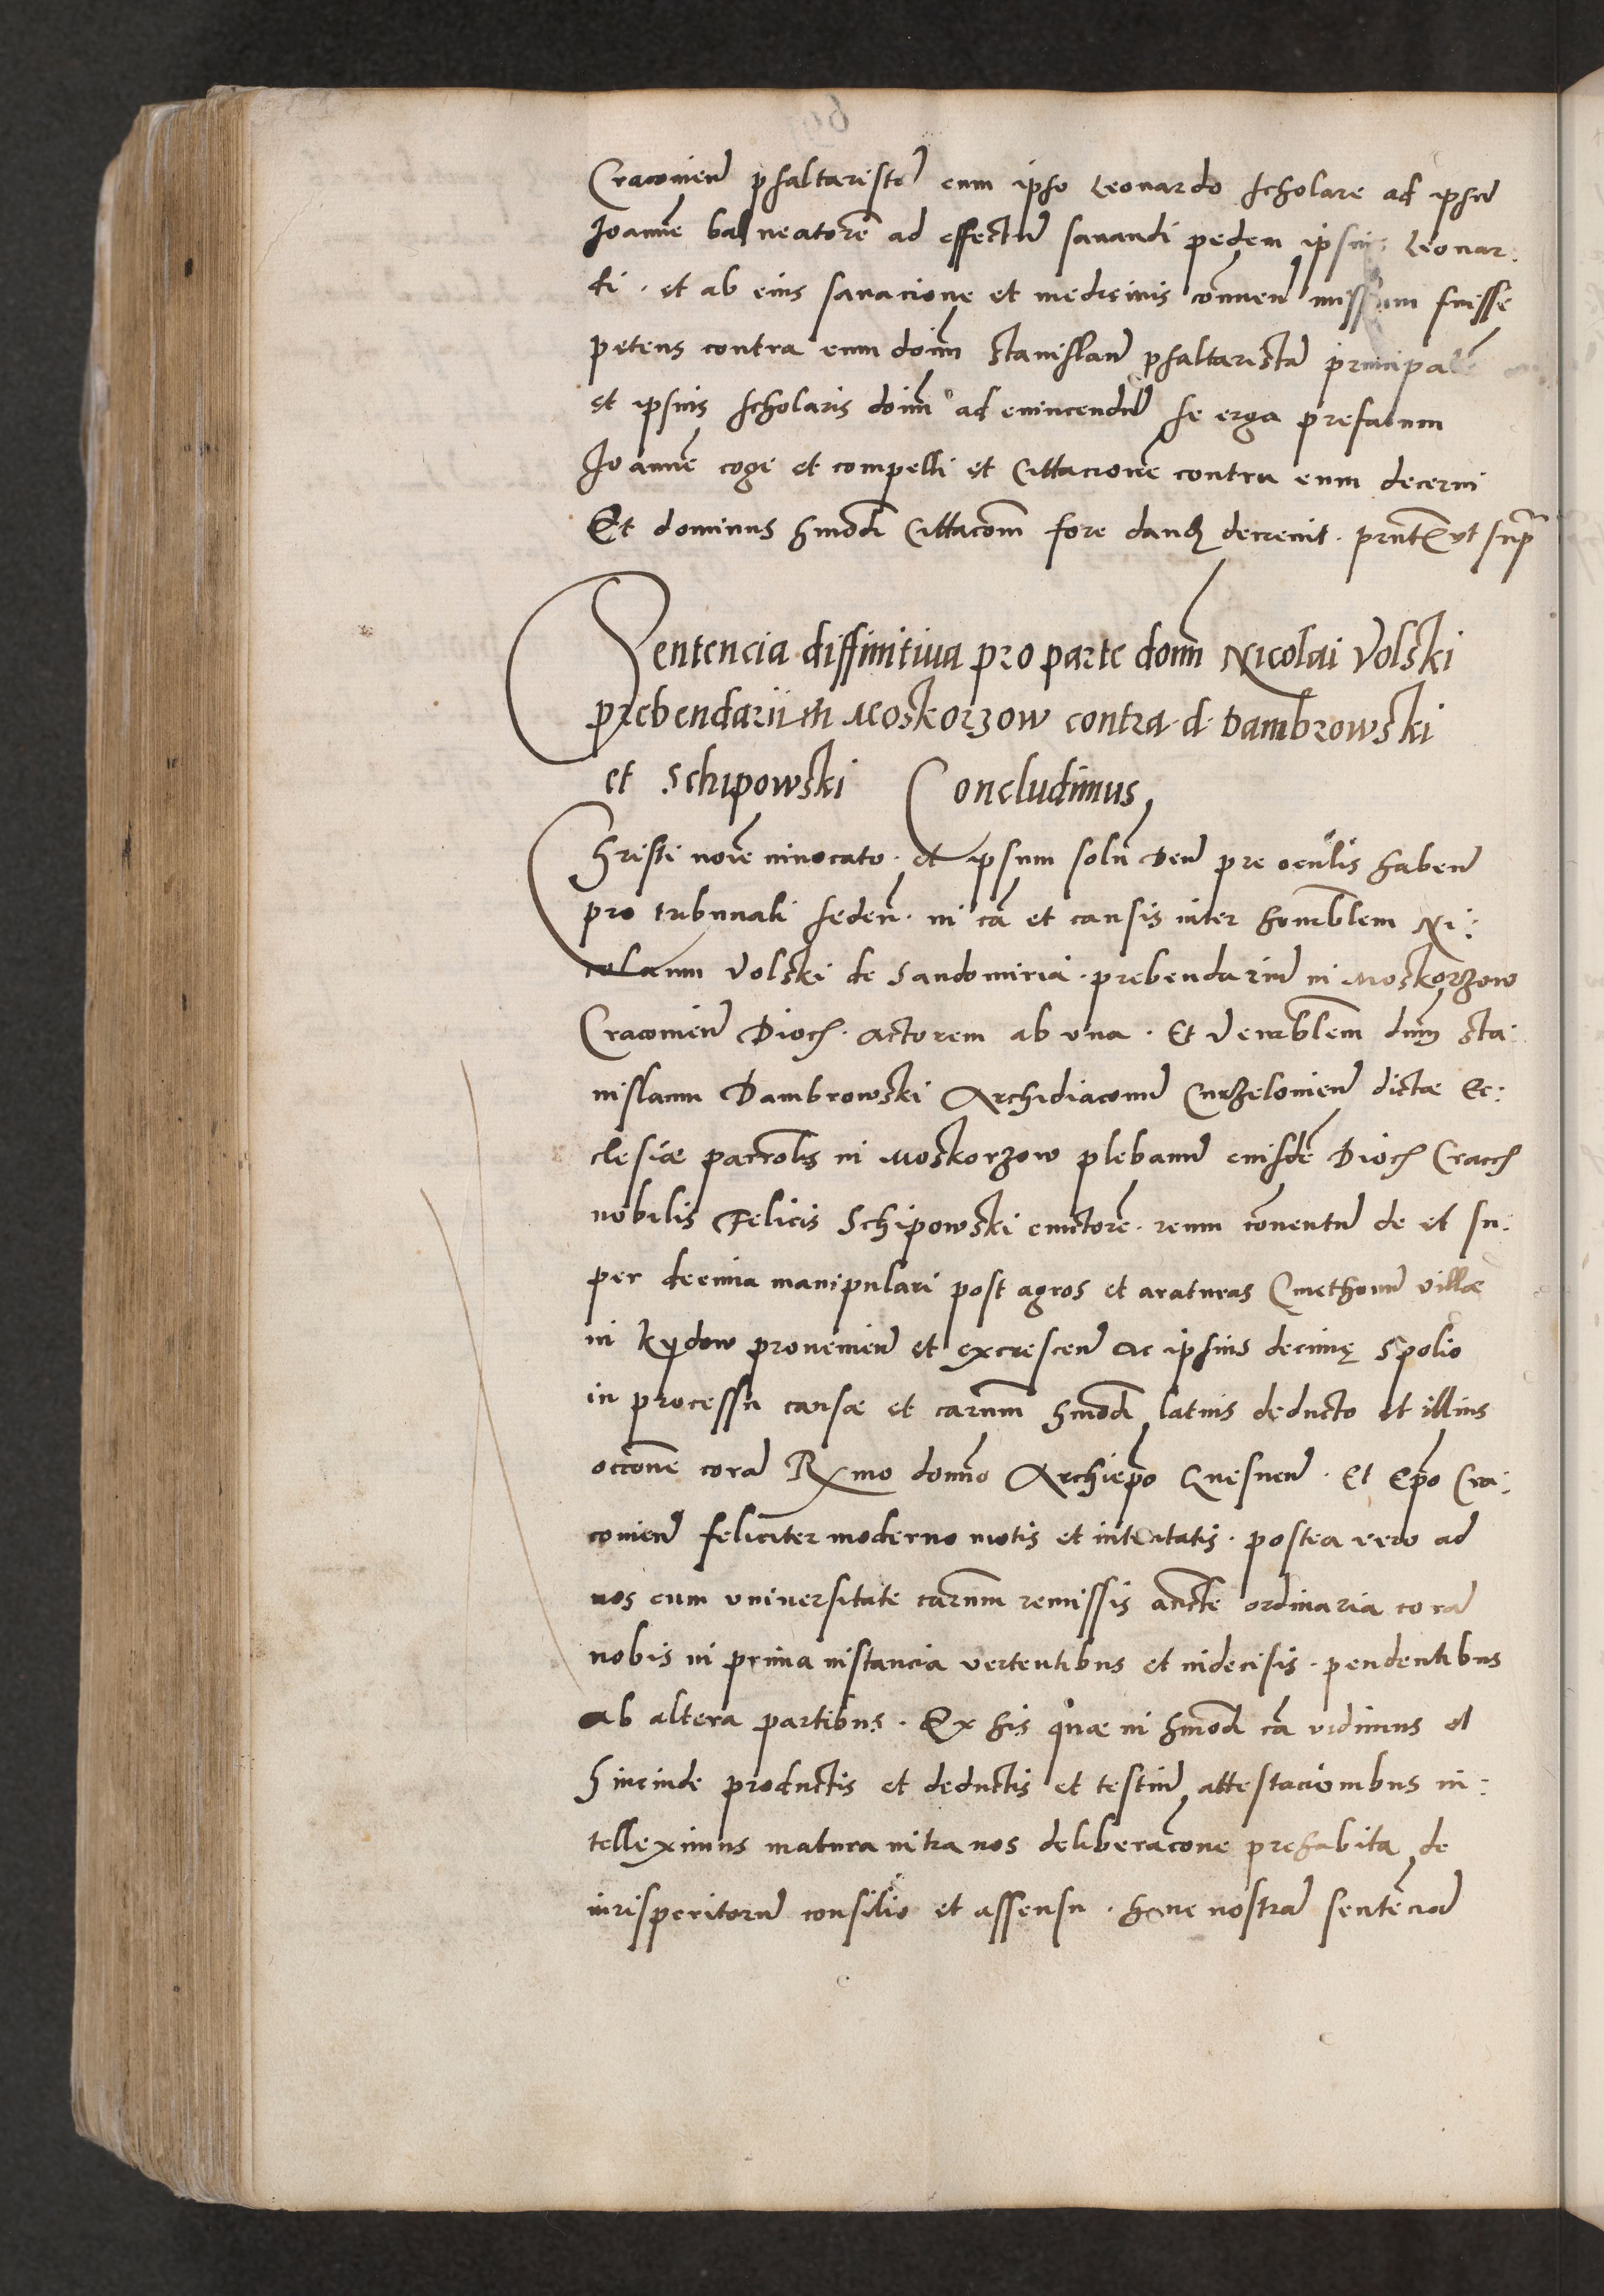 Cracouien̄ psaltaristā cum ipso Leonardo scholare ad ipsū
Joannē balneatorē ad effectū sanandi pedem ipsius Leonar:
di · et ab eius sanacione et medicinis conuen̄ missum fuisse
petens contra eum doīm Stanislaū psaltaristā principalē
et ipsius scholaris doīm ad euincendū se erga prefatum
Joannē cogi et compelli et Cittacionē contra eum decerni
Et dominus hmōdi Cittacōm fore dandā decreuit · pn̄tƷ vt supra
Sentencia diffinitiua pro parte domī Nicolai Volski
prebendarii in Moskorzow contra · d · Dambrowski
et Schipowski Concludimus,
Christi noīe inuocato · et ipsum solū Deū pre oculis haben̄
pro tribunali seden̄ · in cā et causis inter honorablem Ni:
colaum Volski de Sandomiria · prebendariū in Moskorzow
Cracouien̄ Dioc̄ · actorem ab vna · Et Venerablem dnm̄ Sta:
nislaum Dambrowski Archidiaconū Curzelouien̄ dictæ Ec:
clesiæ parrolis in Moskorzow plebanū eiusdē Dioc̄ Cracc̄
nobilis Felicis Schipowski euictorē · reum conuentū de et su:
per decima manipulari post agros et araturas Cmethonū villæ
in Kydow prouenien̄ et excrescen̄ ac ipsius decimę spolio
in processu causæ et carum̄ hmōdi latius deducto et illius
occōne corā Rx̄mo domīno Archiepo Gnesnen̄ · Et Epo Cra:
couien̄ feliciter moderno motis et intentatis · postea vero ad
nos cum vniuersitate carum̄ remissis aucte ordinaria corā
nobis in prima instancia vertentibus et indecisis · pendentibus
ab altera partibus · Ex his quæ in hmōdi cā vidimus et
hincinde productis et deductis et testiū attestacionibus in:
telleximus matura intra nos deliberacōne prehabita de
iurisperitorū consilio et assensu · hanc nostrā sentēciā